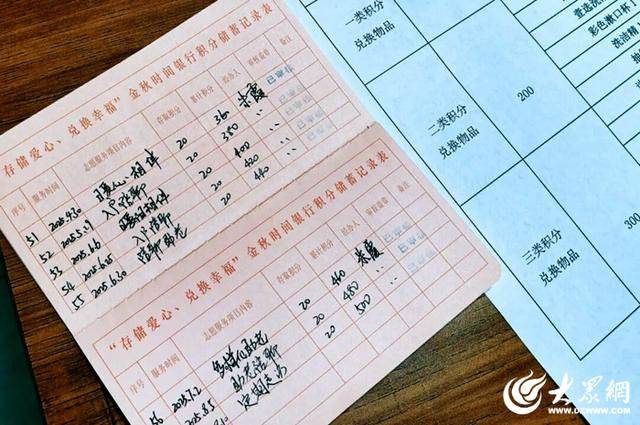 “存储爱心、兑换幸福”金秋时间银行积分储蓄记录表
序号 服务时间 志愿服务项目内容 存取积分 累计积分 经办人 审核盖章 备注
51 2025.4.30 暖心相伴 20 360 朱霞 已审核
52 2025.5.19 入户陪聊 20 380 〃 已审核
53 2025.6.6 20 400 〃 已审核
54 2025.6.25 入户陪聊 20 420 〃 已审核
55 2025.6.30 20 440 〃 已审核
“存储爱心、兑换幸福”金秋时间银行积分储蓄记录表
序号 服务时间 志愿服务项目内容 存取积分 累计积分 经办人 审核盖章 备注
56 2025.7.2 20 460 朱霞 已审核
2025.8.5 助老陪聊 20 480 〃 已审核
定期走访 20 500 〃 已审核
一类积分
兑换物品
彩色漱口杯
洗洁精
二类积分
兑换物品
200
三类积分
兑换物品
大众網
WWW.DZWWW.COM